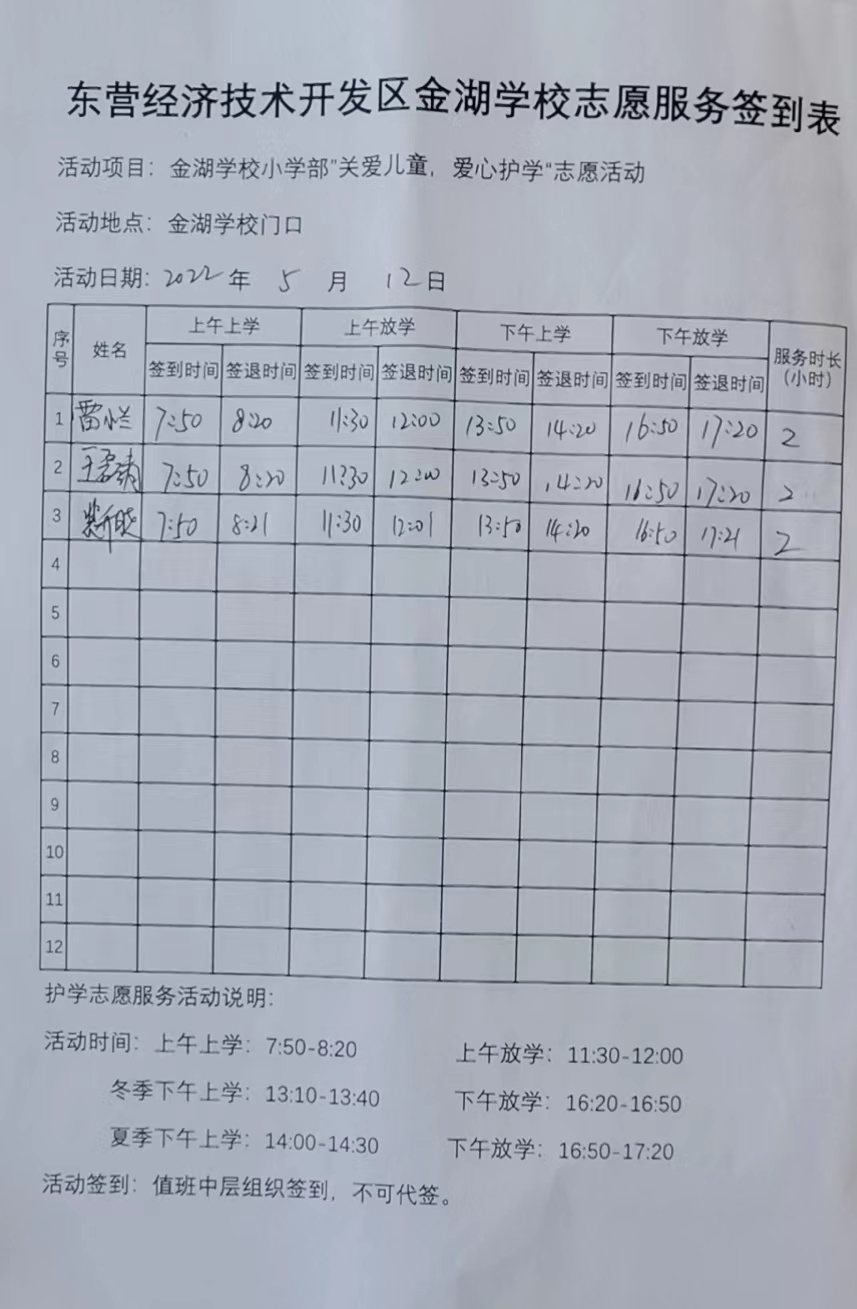 东营经济技术开发区金湖学校志愿服务签到表
活动项目：金湖学校小学部"关爱儿童，爱心护学"志愿活动
活动地点：金湖学校门口
活动日期：2022年 5 月 12日
序号 姓名 上午上学 上午放学 下午上学 下午放学 服务时长（小时）
签到时间 签退时间 签到时间 签退时间 签到时间 签退时间 签到时间 签退时间
1 7:50 8:20 11:30 12:00 13:50 14:20 16:50 17:20 2
2 7:50 8:20 11:30 12:00 13:50 14:20 16:50 17:20 2
3 7:50 8:21 11:30 12:01 13:50 14:20 16:50 17:21 2
4
5
6
7
8
9
10
11
12
护学志愿服务活动说明：
活动时间：上午上学：7:50-8:20 上午放学：11:30-12:00
冬季下午上学：13:10-13:40 下午放学：16:20-16:50
夏季下午上学：14:00-14:30 下午放学：16:50-17:20
活动签到：值班中层组织签到，不可代签。